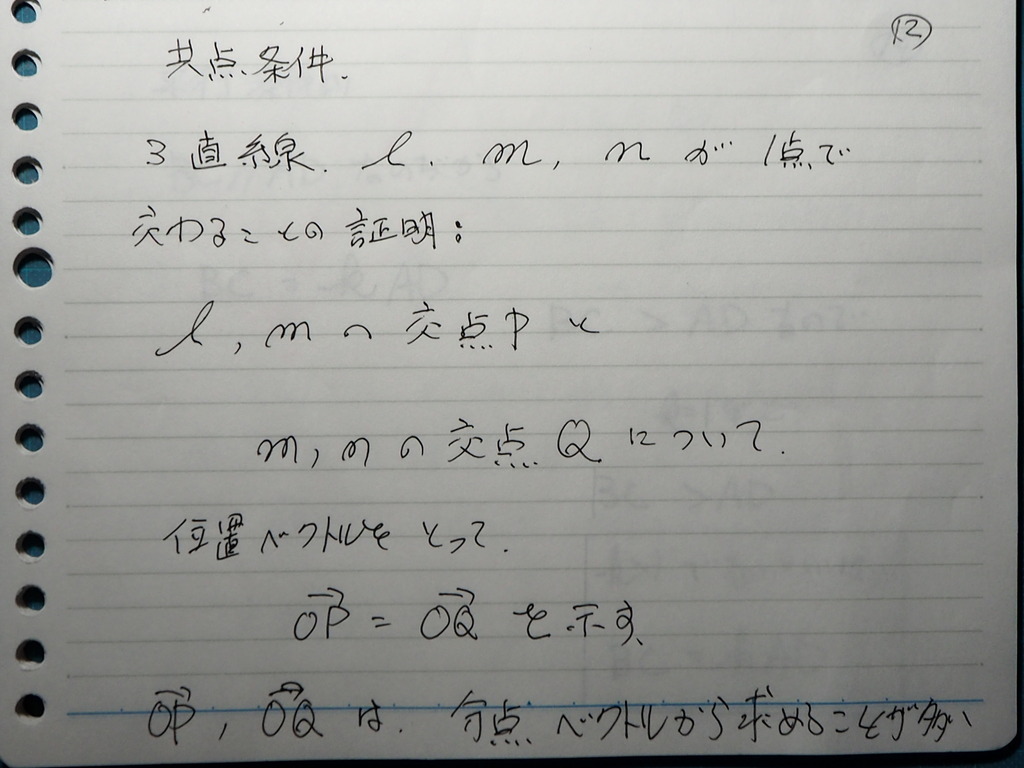 ⑫
共点条件.
3直線. l. m, n が 1点で
交わることの証明:
l, m の 交点 P と
m, n の 交点 Q について.
位置ベクトルをとって.
$\overrightarrow{OP} = \overrightarrow{OQ}$ を示す.
$\overrightarrow{OP}$, $\overrightarrow{OQ}$ は. 分点ベクトルから求めることが多い